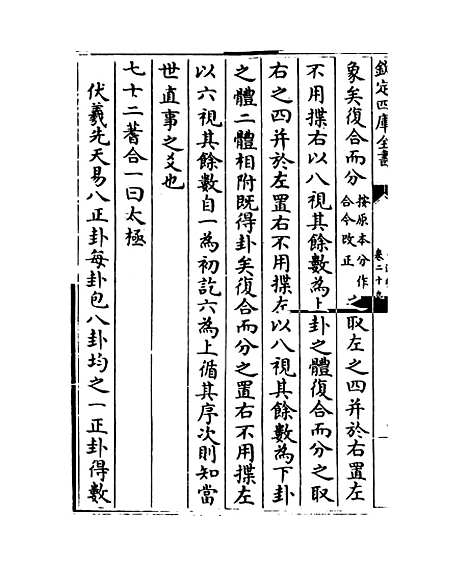 欽定四庫全書
卷二十九
象矣復合而分按原本分作合今改正之取左之四并於右置左
不用揲右以八視其餘數為上卦之體復合而分之取
右之四并於左置右不用揲左以八視其餘數為下卦
之體二體相附既得卦矣復合而分之置右不用揲左
以六視其餘數自一為初訖六為上循其序次則知當
世直事之爻也
七十二蓍合一曰太極
伏羲先天易八正卦每卦包八卦均之一正卦得數